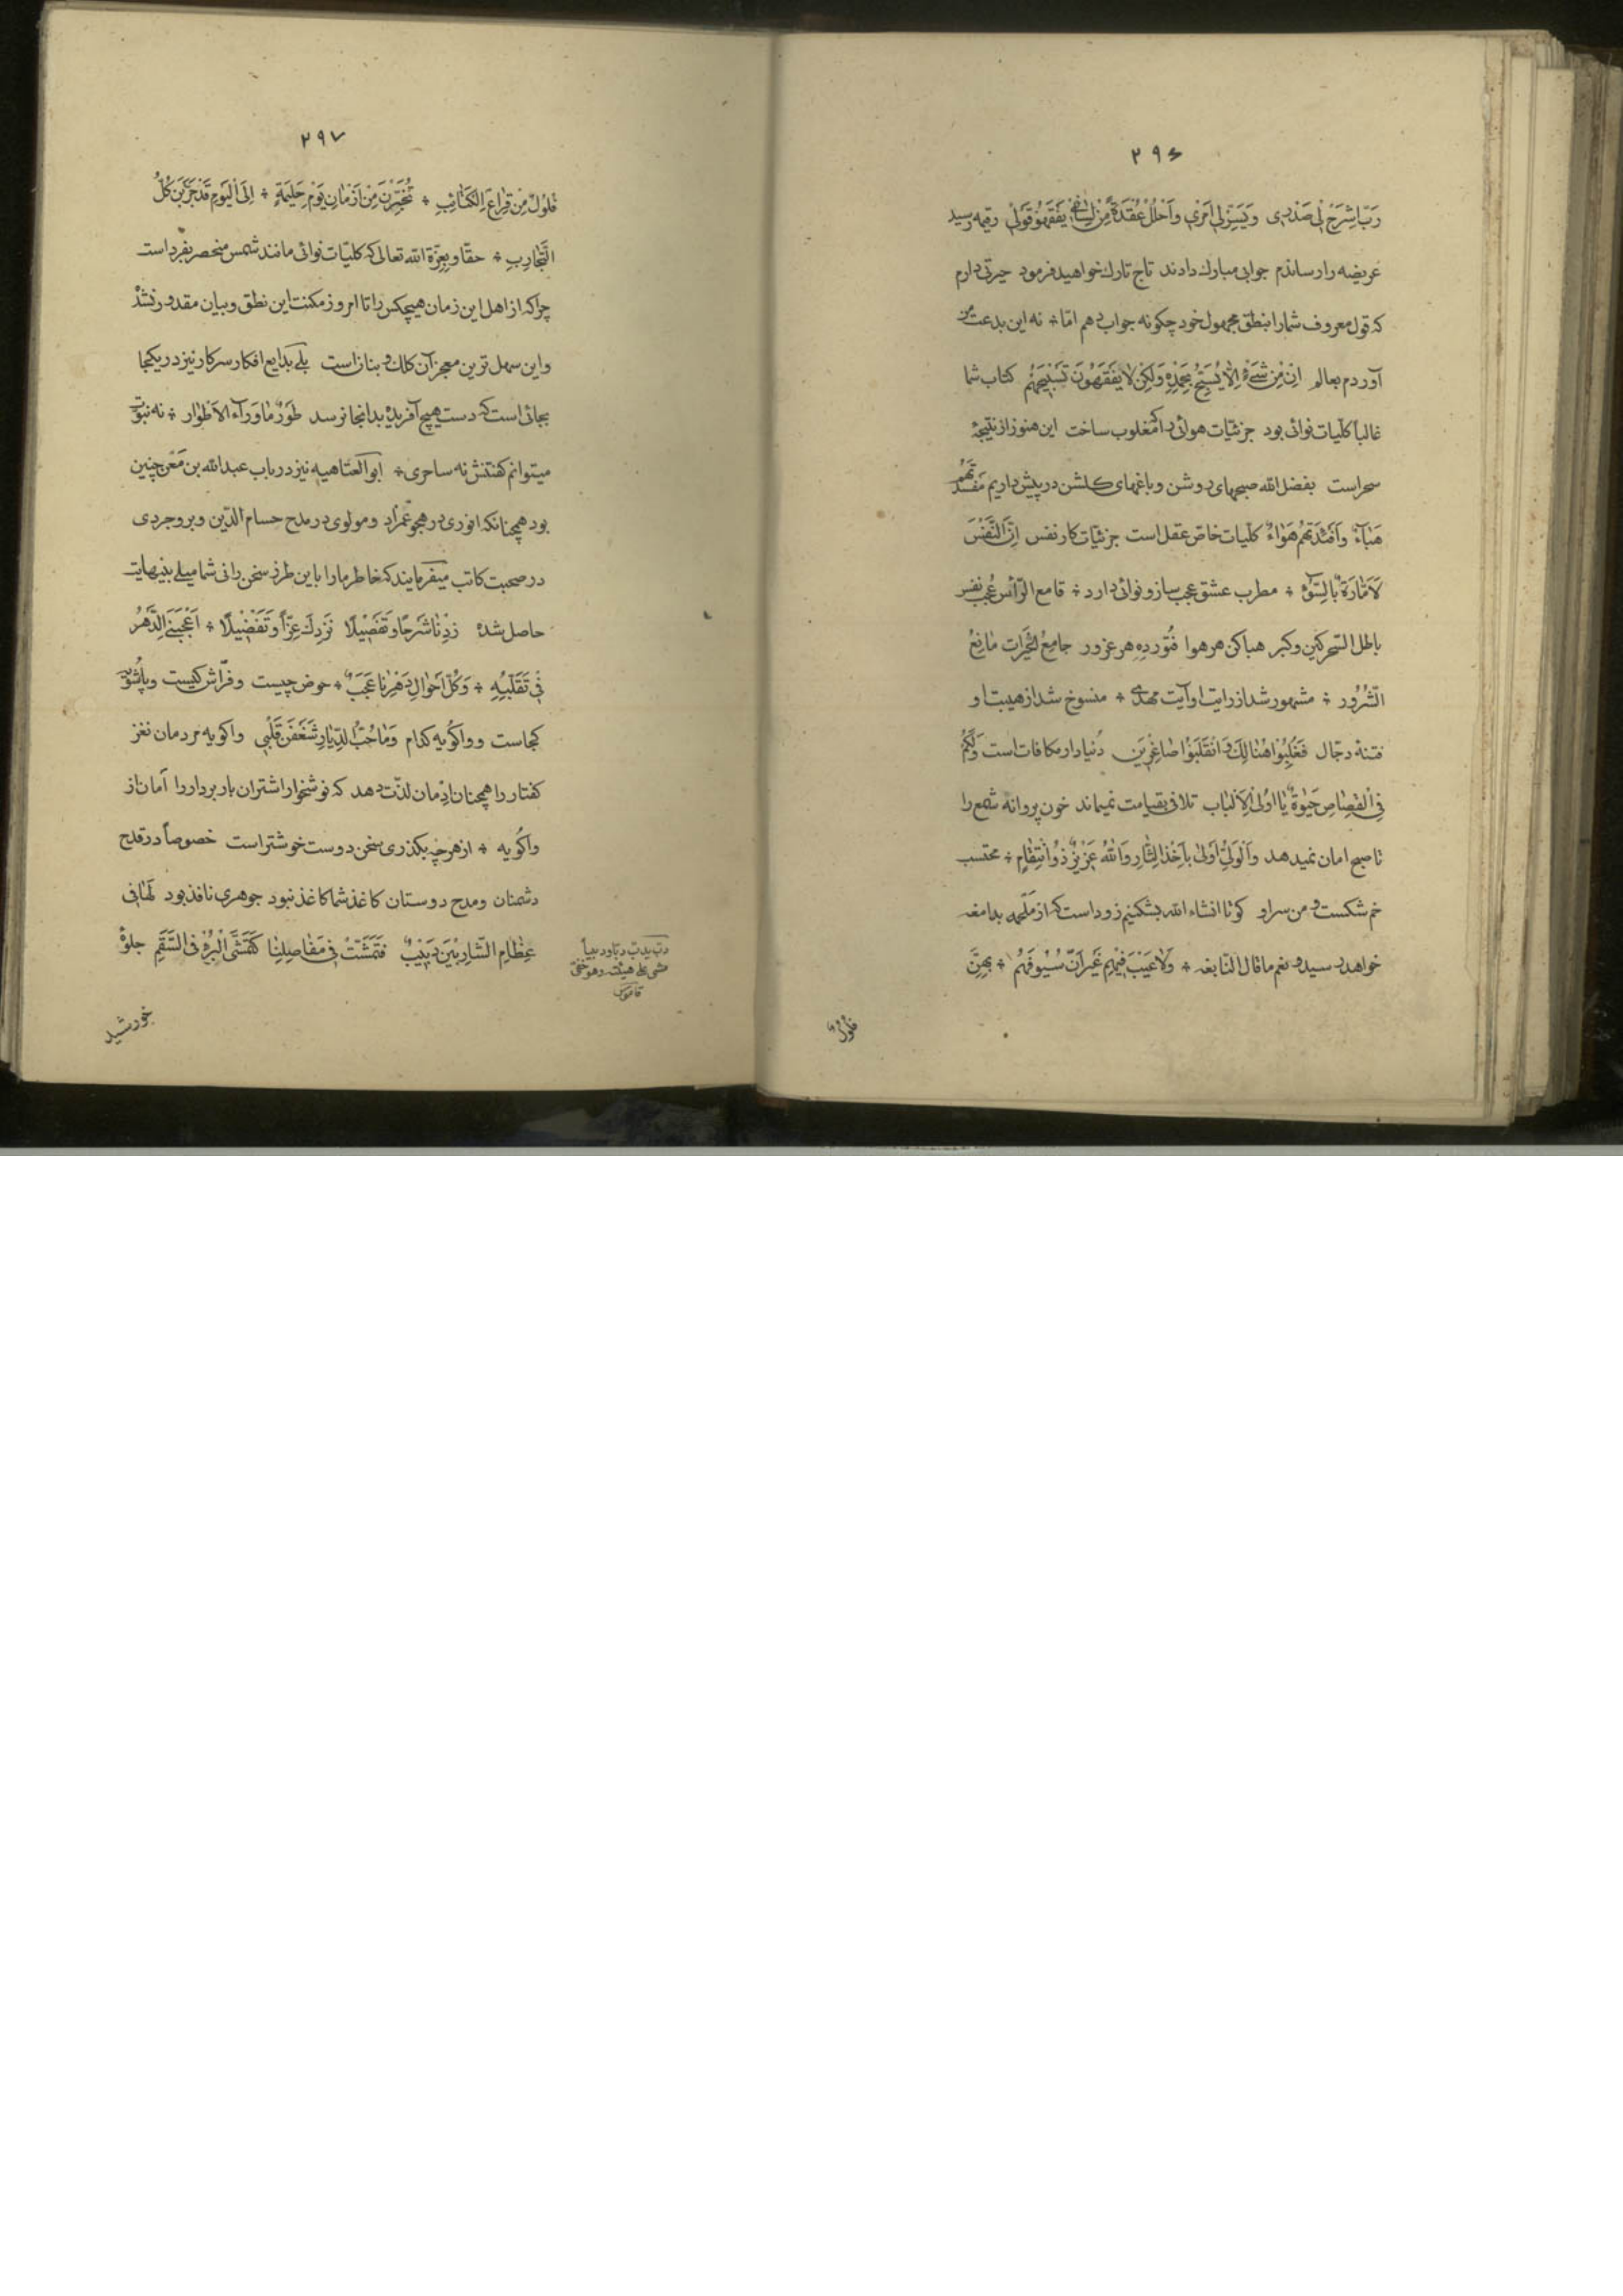 ۲۹۶
رَبِّ اشْرَحْ لِی صَدْرِی وَیَسِّرْلِی اَمْرِی وَاحْلُلْ عُقْدَةً مِنْ لِسَانِی یَفْقَهُوا قَوْلِی رقیمه رسید
عریضه را رساندم جوابی مبارک دادند تاج تارک خواهید فرمود حیرتی دارم
که قول معروف شما را بنطق مجهول خود چکونه جواب دهم امّا ÷ نه این بدعت من
آوردم بعالم اِنْ مِنْ شَیْءٍ اِلّا یُسَبِّحُ بِحَمْدِهِ وَلکِنْ لا یَفْقَهُونَ تَسْبِیحَهُمْ کتاب شما
غالباً کلّیات نوائی بود جزئیّات هوائی را که مغلوب ساخت این هنوز از نتیجهٔ
سحر است بفضل الله صبحهای روشن و باغهای کلشن در پیش داریم
هَبَاءٌ وَاَفْئِدَتُهُمْ هَوَاءٌ کلّیات خاصّ عقل است جزئیّات کار نفس اِنَّ النَّفْسَ
لَاَمّارَةٌ بِالسُّوءِ ÷ مطرب عشق عجب ساز و نوائی دارد ÷ قامع الرّأس عُجب نفس
باطل السّحر کین وکبر هباکن هر هوا فتور ده هر غرور جامِعُ الخَیْرات مانِعُ
الشُّرُور ÷ مشهور شد از رایت او آیت مهدی ÷ منسوخ شد از هیبت او
فتنهٔ دجّال فَغُلِبُوا هُنَالِکَ وَانْقَلَبُوا صَاغِرِینَ دُنیا دار مکافات است وَلَکُمْ
فِی الْقِصَاصِ حَیٰوةٌ یَا اُولِی الْاَلْبَاب تلافی بقیامت نمیماند خون پروانه شمع را
تا صبح امان نمیدهد وَالْوَلِیُّ اَوْلی بِاَخْذِ الثّارِ وَاللهُ عَزِیزٌ ذُو انْتِقامٍ ÷ محتسب
خم شکست و من سر او کو تا انشاء الله بشکنیم زود است که از ملحمه بدامغه
خواهد رسید و نعم ما قال النّابغه ÷ وَلا عَیْبَ فِیهِمْ غَیْرَ اَنَّ سُیُوفَهُمْ ÷ بِهِنَّ
فُلُولٌ
۲۹۷
فُلُولٌ مِنْ قِراعِ الکَتَائِبِ ÷ تُخُیِّرْنَ مِنْ اَزْمَانِ یَوْمِ حَلِیمَةٍ ÷ اِلَی الْیَوْمِ قَدْ جَرَّبْنَ کُلَّ
التَّجَارِبِ ÷ حقّا و بعزّة الله تعالی که کلیّات نوائی مانند شمس منحصر بفرد است
چرا که از اهل این زمان هیچکس را تا امروز مکنت این نطق و بیان مقدور نشد
و این سهل ترین معجز آن کلک و بنان است بلی بدایع افکار سرکار نیز در یکجا
بجائی است که دست هیچ آفریده بدانجا نرسد طَوْرٌ ماوَرآءَ الاَطْوار ÷ نه نبوّت
میتوانم گفتنش نه ساحری ÷ ابو العتاهیه نیز در باب عبدالله بن مَعْن چنین
بود همچنانکه انوری در هجو غمزاد ومولوی در مدح حسام الدّین و بروجردی
در صحبت کاتب میفرمایند که خاطر ما را باین طرز سخن رانی شما میلی بنیهایت
حاصل شده زِدْنا شَرْحًا وَتَفْصِیلًا نَزِدْکَ عِزّاً وَتَفْضِیلًا ÷ اَعْجَبَنِی الدَّهْرُ
فِی تَقَلُّبِهِ ÷ وَکُلُّ اَحْوالِ دَهْرِنا عَجَبٌ ÷ حوض چیست و فرّاش کیست و پاشویه
کجاست و واکُویه کدام وَمَا حُبُّ الدِّیارِ شَغَفْنَ قَلْبِی واکویه مردمان نغز
کفتار را همچنان اِدْمان لذّت دهد که نوشخوار اشتران باربردار را آمان از
واکُویه ÷ از هرچه بکذری سخن دوست خوشتر است خصوصاً در قدح
دشمنان و مدح دوستان کاغذ شما کاغذ نبود جوهری نافذ بود لَهَا فِی
عِظامِ الشّارِبِینَ دَبِیبٌ فَتَمَشَّتْ فِی مَفَاصِلِنا کَتَمَشِّی الْبُرْءِ فِی السَّقَمِ جلوهٔ
دبّ یدبّ دبّا و دبیباً
مشی علی هینته وهو خفیّ
قاموس
خورشید